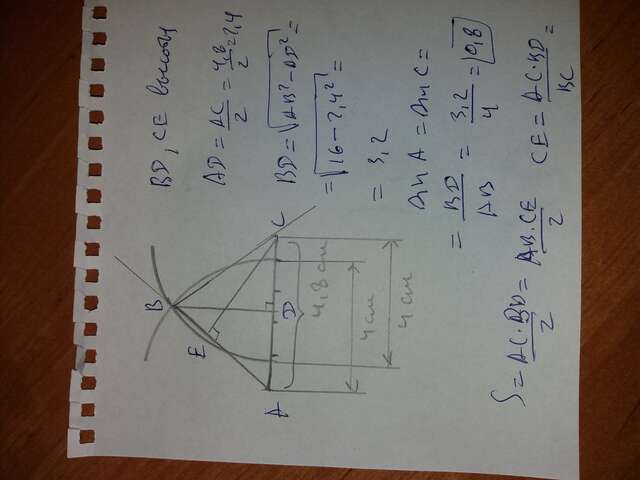 BD, CE высоты
AD = AC/2 = 4,8/2 = 2,4
BD = √(AB² - AD²) =
= √(16 - 2,4²) =
= 3,2
sin A = sin C =
= BD/AB = 3,2/4 = 0,8
S = AC·BD/2 = AB·CE/2 CE = AC·BD/BC
B
E
C
A
D
4,8 см
4 см
4 см